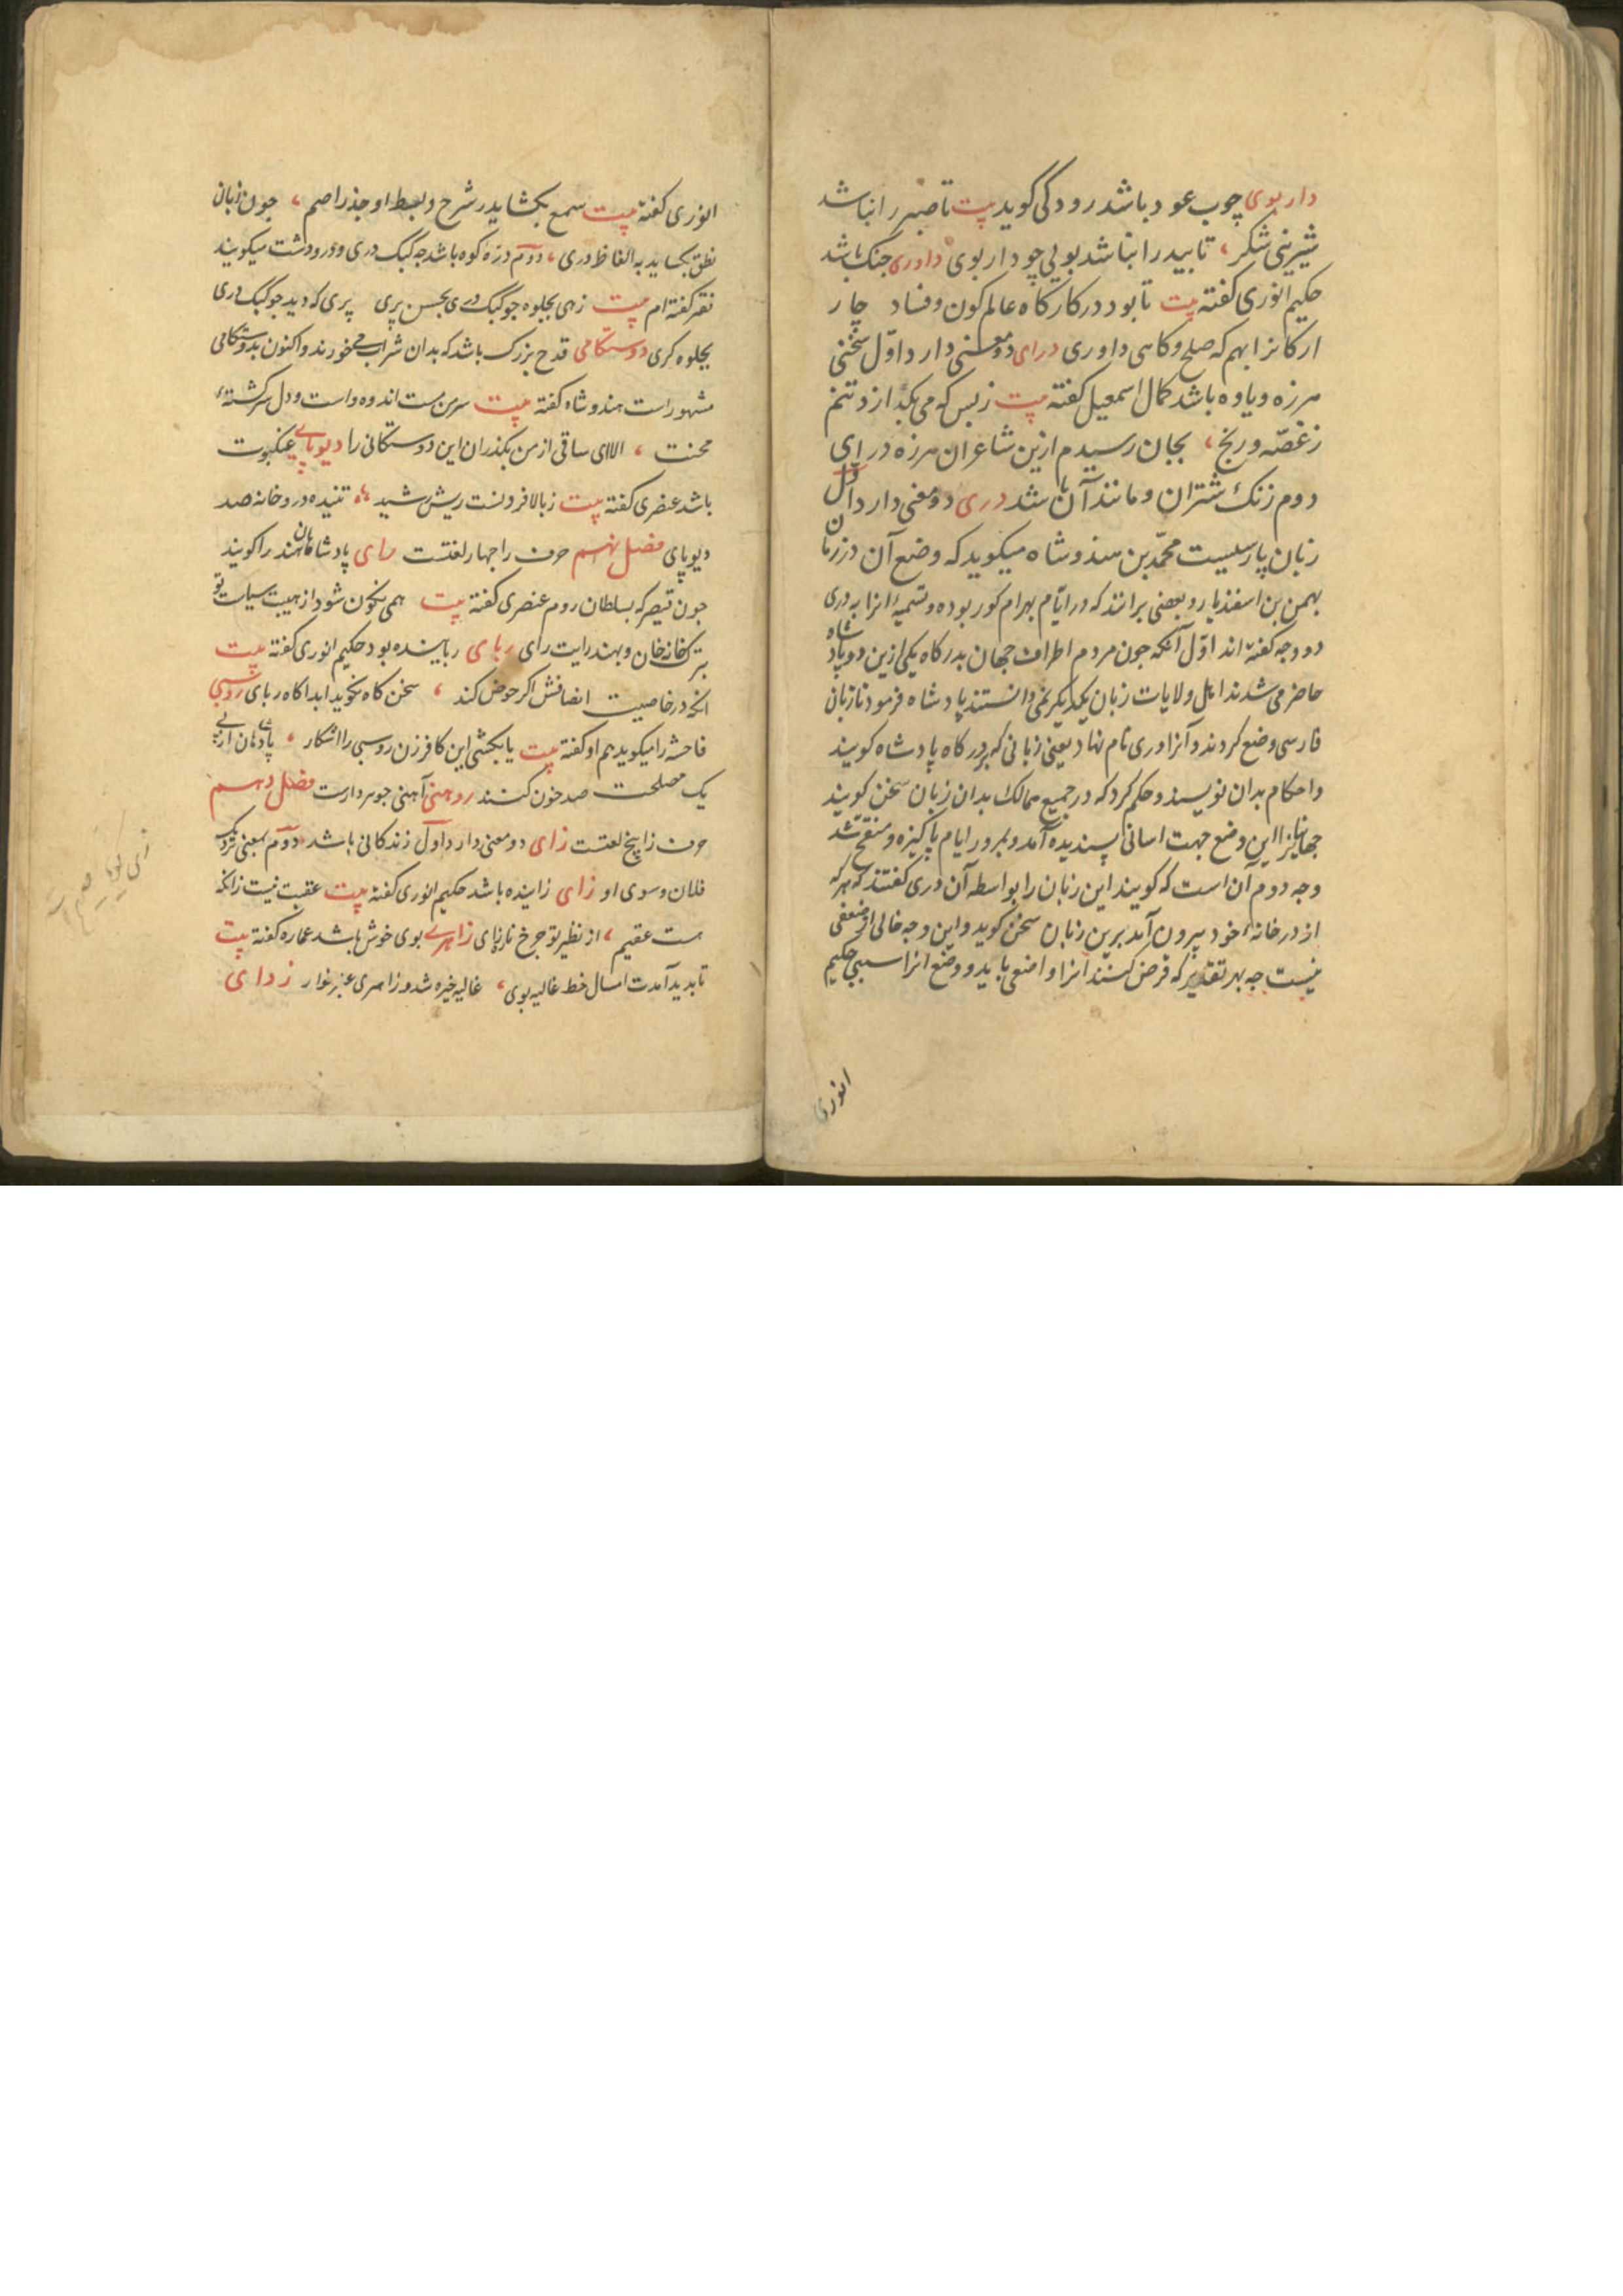 داربوی چوب عود باشد رودکی گوید بیت تا صبر را نباشد
شیرینی شکر، تا بید را نباشد بویی چو داربوی داوری جنک باشد
حکیم انوری کفته بیت تا بود در کارکاه عالم کون و فساد چار
ارکانرا بهم که صلح و کاهی داوری درای دو معنی دارد اول سخنی
هرزه و یاوه باشد کمال اسمعیل کفته بیت زبس که می بکدازد تنم
زغصّه و رنج، بجان رسیدم ازین شاعران هرزه درای
دوم زنک شتران و مانند آن باشد دری دو معنی دارد اول
زبان پارسیست محمّد بن هندوشاه میکوید که وضع آن در زمان
بهمن بن اسفندیار و بعضی برانند که در ایّام بهرام کور بوده و تسمیهٔ انرا به دری
دو وجه کفته اند اوّل آنکه جون مردم اطراف جهان بدرکاه یکی ازین دو پادشاه
حاضر می شدند اهل ولایات زبان یکدیکر نمی دانستند پادشاه فرمود تا زبان
فارسی وضع کردند و آنرا دری نام نهاد یعنی زبانی که بر درکاه پادشاه کویند
و احکام بدان نویسند و حکم کرد که در جمیع ممالک بدان زبان سخن کویند
جهانیانرا این وضع جهت اسانی پسندیده آمد و بمرور ایام پاکیزه و منقح شد
وجه دوم آن است که کویند این زبان را بواسطه آن دری کفتند که هر که
از در خانهٔ خود بیرون آمد برین زبان سخن کوید و این وجه خالی از ضعفی
نیست جه بهر تقدیر که فرض کنند انرا واضعی باید و وضع انرا سببی حکیم
انوری
انوری کفته بیت سمع بکشاید زشرح و بسط او جذر اصم، جون زبان
نطق بکشاید به الفاظ دری، دوّم درّه کوه باشد جه کبک دری و در و دشت میکویند
فقیر کفته ام بیت زهی بجلوه جو کبک دری بحسن پری پری که دید جو کبک دری
بجلوه کری دوستکامی قدح بزرک باشد که بدان شراب می خورند و اکنون بدوستکامی
مشهور است هندوشاه کفته بیت سرمن مست اندوه و است و دل سرکشتهٔ
محنت، الاای ساقی از من بکذران این دوستکانی را دیوپای عنکبوت
باشد عنصری کفته بیت زبالا فرو نست ریش رشید ،، تنیده در و خانه صد
دیوپای فصل نهم حرف را جهار لغتست رای پادشاهان هند را کویند
جون قیصر که بسلطان روم عنصری کفته بیت همی نکون شود از هیبت سیاست تو
بترک خانه خان و بهند رایت رای ربای رباینده بود حکیم انوری کفته بیت
انکه در خاصیت انصافش اکر خوض کند، سخن کاه نکوید ابدا کاه ربای روسپی
فاحشه را میکوید هم او کفته بیت یا بکشی این کافر زن روسبی را اشکار، یا
یک مصلحت صد خون کنند روهنی آهنی جوهردارست فصل دهم
حرف زا پنج لغتست زای دو معنی دارد اول زندکانی باشد دوّم بمعنی نزدیک
فلان و سوی او زای زاینده باشد حکیم انوری کفته بیت عقبت نیست زانکه
هست عقیم، از نظیر تو جرخ نازای زاهری بوی خوش باشد عماره کفته بیت
تا بدید آمدت امسال خط غالیه بوی، غالیه خیره شد و زاهری عنبر خوار زدای